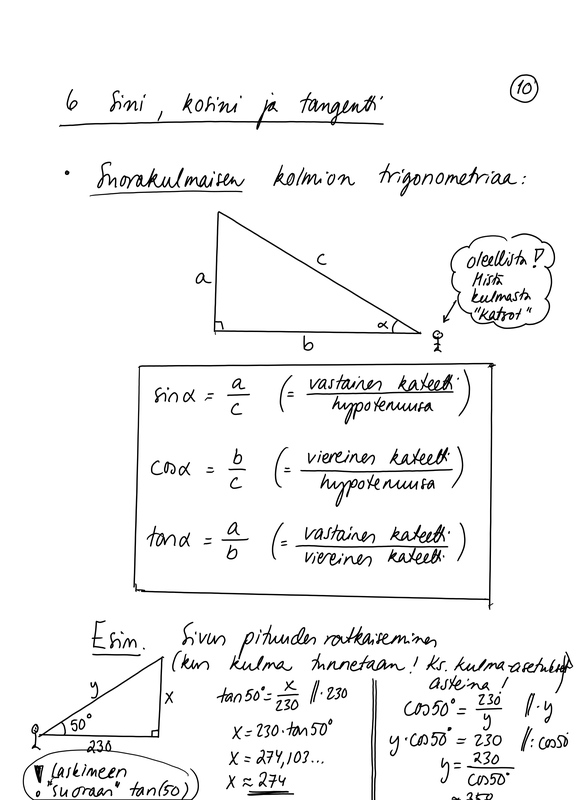 10
6 Sini, kosini ja tangentti
• Suorakulmaisen kolmion trigonometriaa:
c
a
α
b
oleellista!
Mistä
kulmasta
"katsot"
sinα = a/c (= vastainen kateetti / hypotenuusa)
cosα = b/c (= viereinen kateetti / hypotenuusa)
tanα = a/b (= vastainen kateetti / viereinen kateetti)
Esim. Sivun pituuden ratkaiseminen
(kun kulma tunnetaan! Ks. kulma-asetukset
asteina!)
y
x
50°
230
! Laskimeen
"suoraan" tan(50)
tan50° = x/230 ||·230
x = 230·tan50°
x = 274,103...
x ≈ 274
cos50° = 230/y ||·y
y·cos50° = 230 ||:cos50
y = 230/cos50°
≈ 350